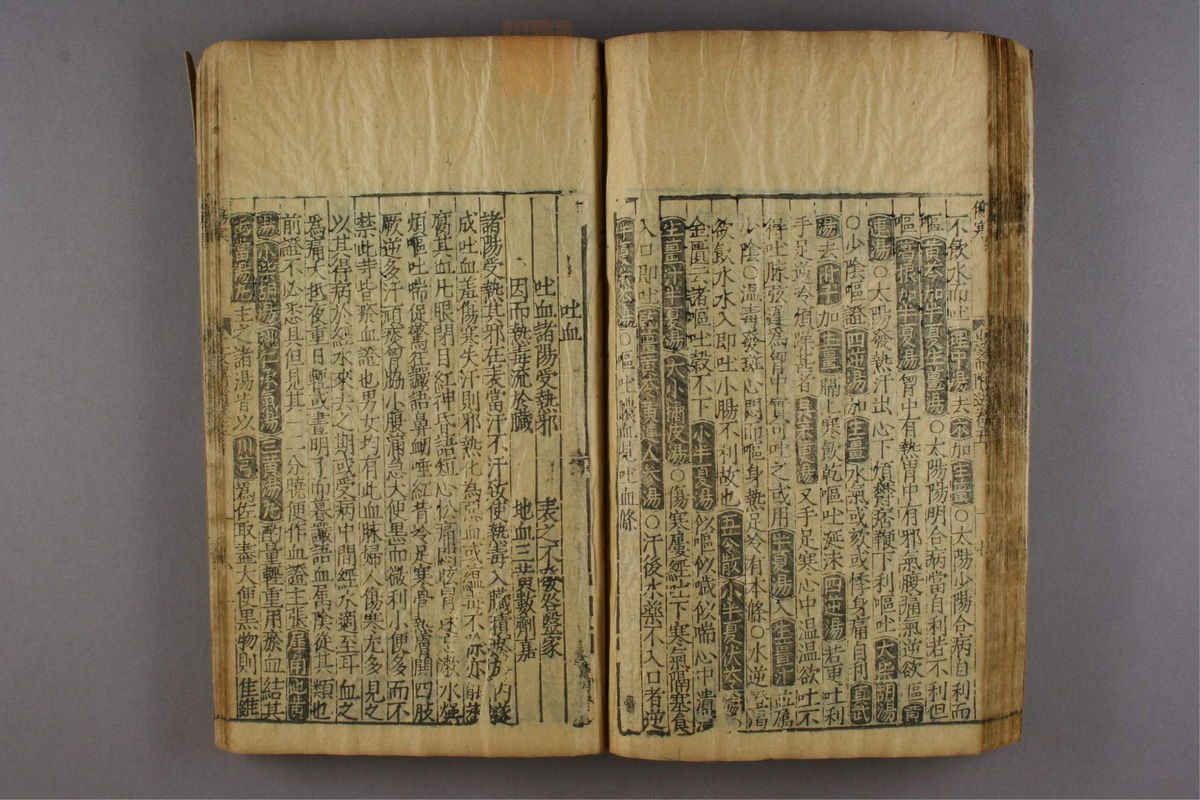 不飲水而吐理中湯去朮加生薑○太陽少陽合病自利而
嘔黃芩加半夏生薑湯○太陽陽明合病當自利若不利但
嘔葛根加半夏湯胷中有熱胃中有邪氣腹痛氣逆欲嘔黃
連湯○太陽發熱汗出心下煩痞鞕下利嘔吐大柴胡湯
○少陰嘔證四逆湯加生薑水氣或欬或悸身痛自利真武
湯去附子加生薑膈上寒飲乾嘔吐涎沫四逆湯若更吐利
手足逆冷煩躁甚者吳茱萸湯又手足寒心中溫溫欲吐不
得吐脉弦遲為胷中實可吐之或用半夏湯入生薑汁並屬
少陰○溫毒發斑心悶而嘔身熱足冷有本條○水逆證渴
欲飲水水入即吐小腸不利故也五苓散小半夏茯苓湯
金匱云諸嘔吐穀不下小半夏湯似嘔似噦似喘心中潰
生薑汁半夏湯大小橘皮湯○傷寒屢經吐下寒氣隔塞食
入口即吐乾薑黃芩黃連人參湯○汗後水藥不入口者逆
半夏茯苓湯○嘔吐膿血見吐血條
吐血
吐血諸陽受熱邪 表之不發各醫家
因而熱毒流於臟 地血三黃數劑嘉
諸陽受熱其邪在表當汗不汗致使熱毒入臟積瘀於內遂
成吐血羞傷寒失汗則邪熱化為惡血或溫毒不
便其血片眼閉目紅神昏語短心忪痛悶眩冒迷忘漱水燥
煩嘔吐喘促驚狂譫語鼻衂唾紅背冷足寒骨熱膚閞四肢
厥逆多汗頑痰胷脇小腹滿急大便黑而微利小便多而不
禁此等皆瘀血證也男女均有此血脉婦人傷寒尤多見之
以其得病於經水來去之期或受病中間經水適至耳血之
為痛大抵夜重日輕或晝明了而暮譫語血屬陰從其類也
前證不必悉具但見其一二分曉便作血證主張犀角地黃
湯小柴胡湯桃仁承氣湯三黃湯丸酌量輕重用瘀血結甚
抵當湯丸主之諸湯皆以川芎為佐取盡大便黑物則佳雖